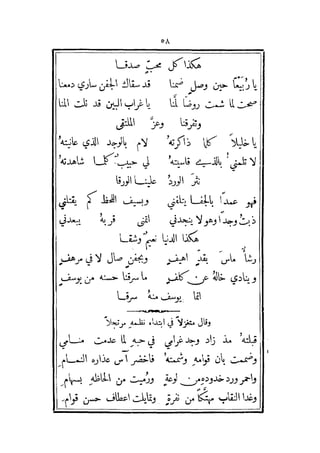 ٥٨
هكذا كل محبّ صدقـا
يا رُبَيْعًا حين وصلٍ ضمنا قد سقاك الجفن ساري دمعنا
صحت لما شمت روضًا لمَّنا يا غراب البين قد نلت المنا
وتفرقنا وعزَّ الملتقى
يا خليلاً كلما ذاكرتهُ لام بالوجد الذي عانيتهُ
لا تلمني بالذي قاسيتهُ لي حبيبٌ كلما شاهدتهُ
نثرَ الوردُ علينا الورقا
فهو عمدًا بالجفا يتلفني وبسيف اللحظ كم يقتلني
ذبتُ وجدًا وهو لا ينجدني اتمنى قربهُ يبعدني
هكذا الدنيا نعيمٌ وشقا
رشأٌ ماسَ بقدٍّ اهيفِ وبجفنٍ صال لا في مرهفِ
وينادي خالهُ عن كلفِ ما سرقنا حسنه من يوسفِ
انما يوسف منهُ سرقا
وقال متغزلاً في ابتداء نظمه مرتجلاً
قبلتهُ مذ زاد وجد غرامي في حبهِ لما عدمت منامي
وضممت بان قوامهِ وشممتهُ فاخضر آس عذاره النمامِ
واحمر ورد خدودهِ من لوعةٍ ورُميت من الحاظهِ بسهامِ
وغدا النقاب مهتَّكًا من نفرةٍ وتمايلت اعطاف حسن قوامِ